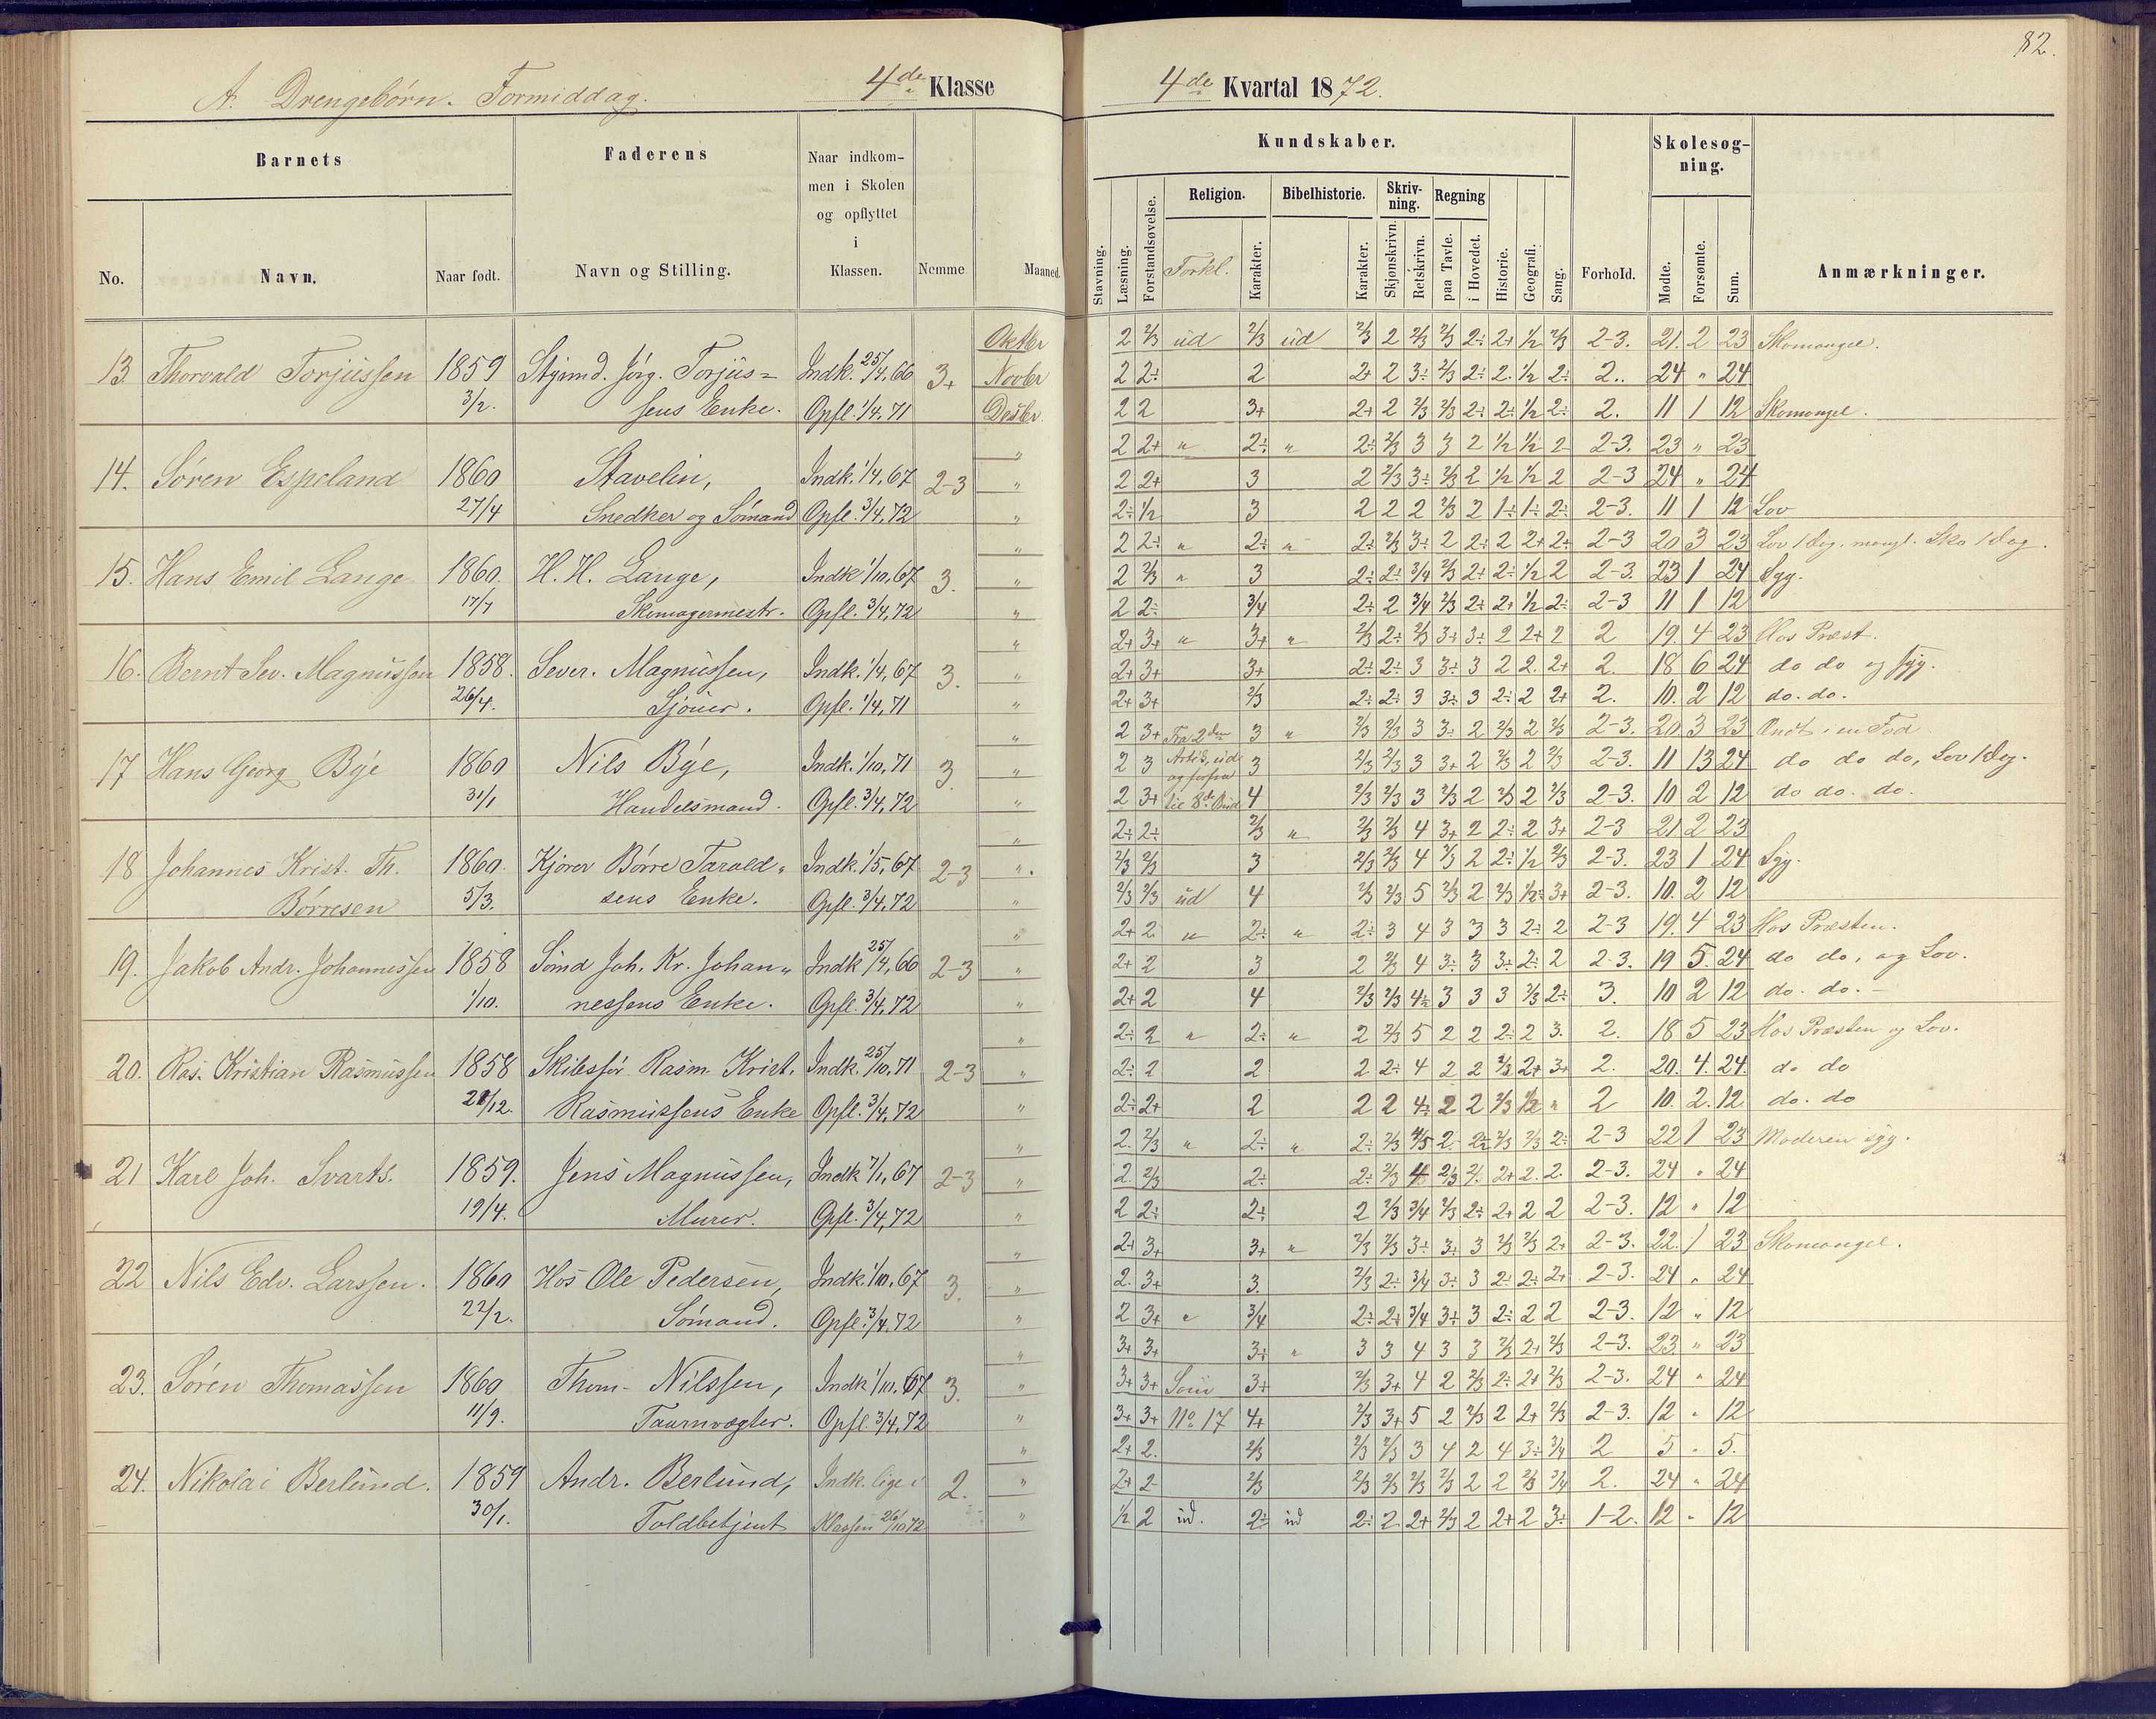 82.
A. Drengebørn. Formiddag.
4de Klasse
4de Kvartal 1872.
Barnets
Faderens
Naar indkom-
men i Skolen
og opflyttet
i
Klassen.
No.
Navn.
Naar født.
Navn og Stilling.
Nemme
Maaned.
Kundskaber.
Stavning.
Læsning.
Forstandsøvelse.
Religion.
Forkl.
Karakter.
Bibelhistorie.
Karakter.
Skriv-
ning.
Skjønskrivn.
Retskrivn.
Regning
paa Tavle.
i Hovedet.
Historie.
Geografi.
Sang.
Forhold.
Skolesøg-
ning.
Mødte.
Forsømte.
Sum.
Anmærkninger.
13. Thorvald Torjussen 1859 Styrmd. Jørg. Torjus= Indk. 25/4, 66 3+ Oktbr
3/2. sens Enke. Opfl. 1/4, 71 Novbr
Desbr.
2 2/3 ud 2/3 ud 2/3 2 2/3 2/3 2÷ 2+ 1/2 2/3 2-3. 21. 2 23 Skomangel.
2 2÷ 2 2+ 2 3÷ 2/3 2÷ 2. 1/2 2÷ 2. 24 " 24
2 2 3+ 2+ 2 2/3 2/3 2÷ 2÷ 1/2 2÷ 2. 11 1 12 Skomangel.
14. Søren Espeland 1860 Stavelin, Indk. 1/4, 67 2-3
27/4 Snedker og Sømand Opfl. 3/4, 72
2 2+ " 2÷ " 2÷ 2/3 3 3 2 1/2 1/2 2 2-3. 23 " 23
2 2+ 3 2 2/3 3÷ 2/3 2 1/2 1/2 2 2-3 24 " 24
2÷ 1/2 3 2 2 2 2/3 2 1÷ 1÷ 2÷ 2-3. 11 1 12 Lov
15. Hans Emil Lange 1860. H. H. Lange, Indk. 1/10, 67 3.
17/7 Skomagermestr. Opfl. 3/4, 72
2 2÷ " 2÷ " 2÷ 2/3 3÷ 2 2÷ 2 2+ 2÷ 2-3 20 3 23 Lov 1 Dag. mangl. Sko 1 Dag.
2 2/3 " 3 2÷ 2÷ 3/4 2/3 2÷ 2÷ 1/2 2 2-3. 23 1 24 Syg.
2 2÷ 3/4 2÷ 2 3/4 2/3 2÷ 2+ 1/2 2÷ 2-3 11 1 12
16. Bernt Sev. Magnussen 1858. Sever. Magnussen, Indk. 1/4, 67 3.
26/4. Sjouer. Opfl. 1/4, 71
2+ 3+ " 3+ " 2/3 2÷ 2/3 3+ 3÷ 2 2+ 2 2 19. 4 23 Hos Præst.
2+ 3+ 3+ 2÷ 2÷ 3 3÷ 3 2 2. 2+ 2. 18 6 24 do do og syg.
2+ 3+ 2/3 2÷ 2÷ 3 3÷ 3 2÷ 2 2+ 2. 10. 2 12 do. do.
17 Hans Georg Bÿe 1860 Nils Bÿe, Indk. 1/10, 71 3.
31/1 Handelsmand. Opfl. 3/4, 72
2 3+ Fra 2den 3 " 2/3 2/3 3 3÷ 2 2/3 2 2/3 2-3. 20 3 23 Ondt i en Fod
2 3 Artik, ud 3 2/3 2/3 3 3+ 2 2/3 2 2/3 2-3. 11 13 24 do do do, Lov 1 Dag.
og forfra
2 3+ til 8de Bud 4 2/3 2/3 3 2/3 2 2/3 2 2/3 2-3. 10 2 12 do do. do.
18 Johannes Krist. Th. 1860. Kjører Børre Tarald= Indk. 1/5, 67 2-3
Børresen 5/3. sens Enke. Opfl. 3/4, 72
2÷ 2÷ 2/3 " 2/3 2/3 4 3+ 2 2÷ 2 3+ 2-3 21 2 23
2/3 2/3 3 2/3 2/3 4 2/3 2 2÷ 1/2 2/3 2-3. 23 1 24 Syg.
2/3 2/3 ud 4 2/3 2/3 5 2/3 2 2/3 1/2÷ 3+ 2-3. 10. 2 12
19. Jakob Andr. Johannessen 1858 Sømd Joh. Kr. Johan= Indk 25/4, 66 2-3
1/10. nessens Enke. Opfl. 3/4, 72
2+ 2 " 2÷ " 2÷ 3 4 3 3 3 2÷ 2 2-3 19. 4 23 Hos Præsten.
2+ 2 3 2 2/3 4 3÷ 3 3÷ 2÷ 2 2-3. 19 5. 24 do do, og Lov.
2+ 2 4 2/3 2/3 4÷ 3 3 3 2/3 2÷ 3. 10 2 12 do. do.
20. Ras. Kristian Rasmussen 1858 Skibsfør. Rasm. Krist. Indk. 25/10, 71 2-3
21/12. Rasmussens Enke Opfl. 3/4, 72
2÷ 2 " 2÷ " 2 2/3 5 2 2 2÷ 2 3. 2. 18 5 23 Hos Præsten og Lov.
2÷ 2 2 2 2÷ 4 2 2 2/3 2+ 3+ 2. 20. 4. 24 do do
2÷ 2+ 2 2 2 4÷ 2 2 2/3 1/2 " 2 10. 2. 12 do. do
21 Karl Joh. Svarts. 1859. Jens Magnussen, Indk 7/1, 67 2-3
19/4. Murer. Opfl. 3/4, 72
2. 2/3 " 2÷ " 2÷ 2/3 4/5 2 2÷ 2/3 2/3 2÷ 2-3 22 1 23 Moderen syg.
2. 2/3 2÷ 2÷ 2/3 4 2/3 2 2+ 2. 2. 2-3. 24 " 24
2 2÷ 2÷ 2 2/3 3/4 2/3 2÷ 2+ 2 2 2-3. 12 " 12
22 Nils Edv. Larssen. 1860 Hos Ole Pedersen, Indk. 1/10, 67 3.
22/2. Sømand. Opfl. 3/4, 72
2+ 3+ 3+ " 2/3 2/3 3÷ 3÷ 3 2/3 2/3 2+ 2-3. 22. 1 23 Skomangel.
2. 3+ 3. 2/3 2÷ 3/4 3÷ 3 2÷ 2÷ 2+ 2-3. 24 " 24
2 3+ " 3/4 2÷ 2÷ 3/4 3÷ 3 2÷ 2 2 2-3. 12 " 12
23. Søren Thomassen 1860 Thom. Nilssen, Indk 1/10, 67 3.
11/9. Taarnvægter. Opfl. 3/4, 72
3+ 3+ 3÷ " 3 3 4 3 3 2/3 2+ 2/3 2-3. 23 " 23
3+ 3+ Som 3+ 2/3 3+ 4 2 2/3 2÷ 2+ 2/3 2-3. 24 " 24
3+ 3+ No 17 4+ 2/3 3+ 5 2 2/3 2 2+ 2/3 2-3. 12 " 12
24. Nikolai Berlund. 1859 Andr. Berlund, Indk. lige i 2.
30/1. Toldbetjent Klassen 26/10 72
2+ 2. 2/3 2/3 2/3 3 4 2 4 3÷ 3/4 2 5 " 5.
2+ 2 2/3 2/3 2/3 2/3 2/3 2 2 2/3 3/4 2. 24 " 24
1/2 2 ud. 2÷ ud 2÷ 2 2+ 2/3 2 2+ 2 3÷ 1-2. 12 " 12